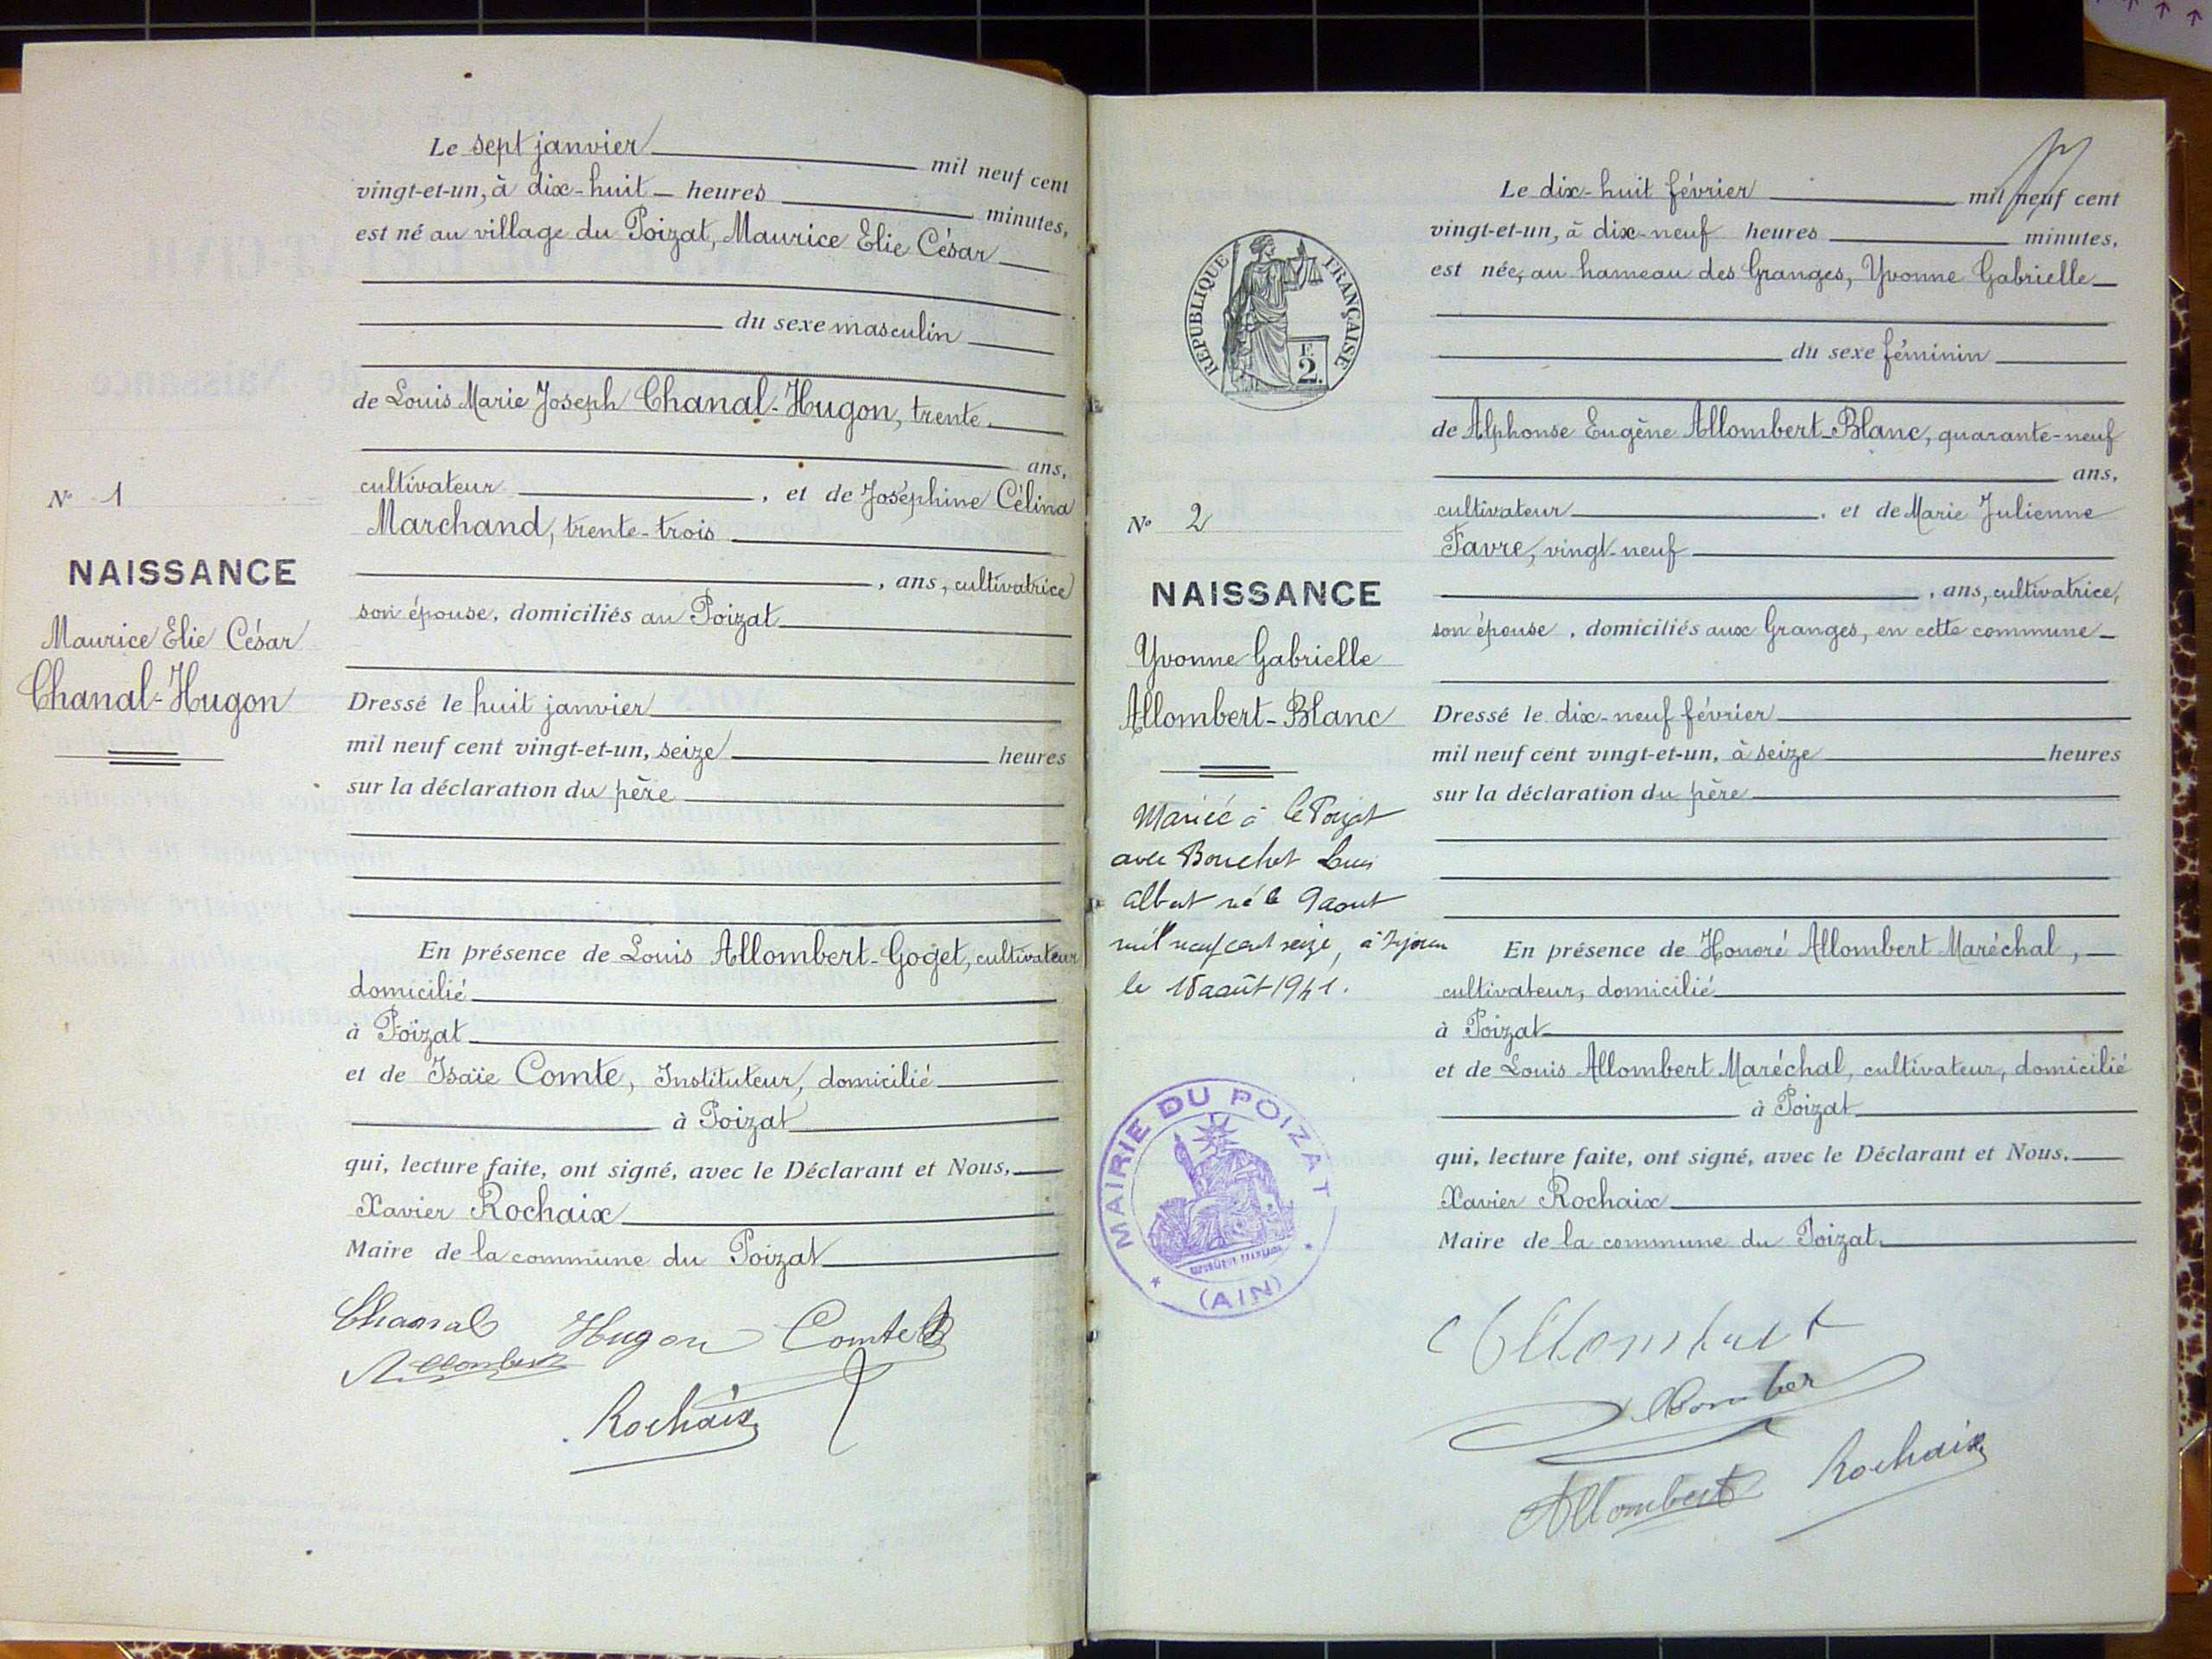 Le sept janvier mil neuf cent
vingt-et-un, à dix-huit heures minutes,
est né au village du Poizat, Maurice Elie César
du sexe masculin
de Louis Marie Joseph Chanal-Hugon, trente
ans,
cultivateur , et de Joséphine Célina
Marchand, trente-trois
, ans, cultivatrice
son épouse, domiciliés au Poizat
N° 1
NAISSANCE
Maurice Elie César
Chanal-Hugon
Dressé le huit janvier
mil neuf cent vingt-et-un, seize heures
sur la déclaration du père
En présence de Louis Allombert-Goget, cultivateur
domicilié
à Poizat
et de Isaïe Comte, Instituteur, domicilié
à Poizat
qui, lecture faite, ont signé, avec le Déclarant et Nous,
Xavier Rochaix
Maire de la commune du Poizat
Chanal Hugon Comte
Allombert
Rochaix
Le dix-huit février mil neuf cent
vingt-et-un, à dix-neuf heures minutes,
est née, au hameau des Granges, Yvonne Gabrielle
du sexe féminin
de Alphonse Eugène Allombert-Blanc, quarante-neuf
ans,
cultivateur , et de Marie Julienne
Favre, vingt-neuf
, ans, cultivatrice,
son épouse , domiciliés aux Granges, en cette commune
Dressé le dix-neuf février
mil neuf cent vingt-et-un, à seize heures
sur la déclaration du père
En présence de Honoré Allombert Maréchal,
cultivateur, domicilié
à Poizat
et de Louis Allombert Maréchal, cultivateur, domicilié
à Poizat
qui, lecture faite, ont signé, avec le Déclarant et Nous,
Xavier Rochaix
Maire de la commune du Poizat
REPUBLIQUE FRANÇAISE
F.
2.
N° 2
NAISSANCE
Yvonne Gabrielle
Allombert-Blanc
Mariée à le Poizat
avec Bouchet Louis
Albert né le 9 aout
mil neuf cent seize, à
le 18 août 1941.
MAIRIE DU POIZAT
REPUBLIQUE FRANÇAISE
(AIN)
Allombert
Allomber
Allombert Rochaix